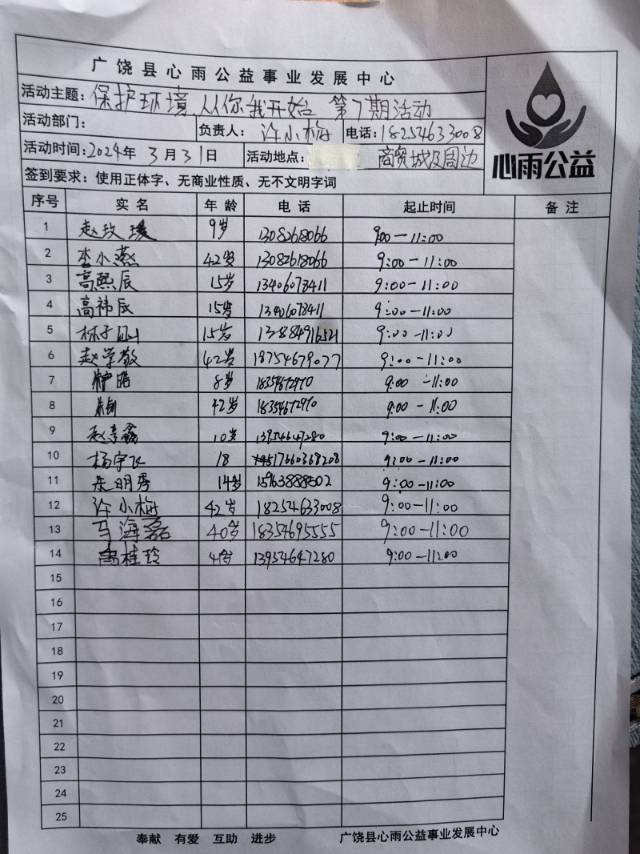 广饶县心雨公益事业发展中心
活动主题: 保护环境,从你我开始 第7期活动
活动部门: 负责人: 许小梅 电话: 18254633008
活动时间: 2024年 3月31日 活动地点: 商贸城及周边
签到要求: 使用正体字、无商业性质、无不文明字词
心雨公益
序号 实名 年龄 电话 起止时间 备注
1 赵玫瑗 9岁 13082618066 9:00-11:00
2 李小燕 42岁 13082618066 9:00-11:00
3 高熙辰 15岁 13406078411 9:00-11:00
4 高祎辰 15岁 13406078411 9:00-11:00
5 15岁 9:00-11:00
6 赵学敏 42岁 18754679077 9:00-11:00
7 8岁 9:00-11:00
8 42岁 9:00-11:00
9 10岁 13954647280 9:00-11:00
10 杨宇飞 18 17660368208 9:00-11:00
11 14岁 15963888502 9:00-11:00
12 许小梅 42岁 18254633008 9:00-11:00
13 马海磊 40岁 18354695555 9:00-11:00
14 桂玲 13954647280 9:00-11:00
15
16
17
18
19
20
21
22
23
24
25
奉献 有爱 互助 进步 广饶县心雨公益事业发展中心